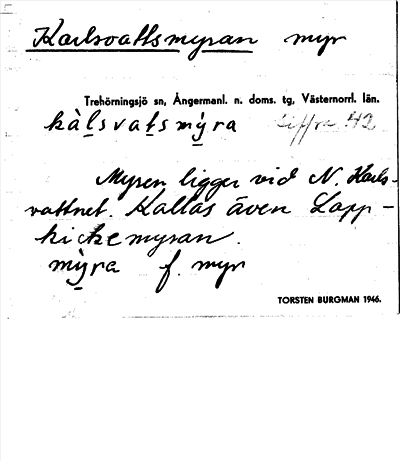 Karlsvattsmyran myr
Trehörningsjö sn, Ångermanl. n. doms. tg, Västernorrl. län.
kàl̠svat̠smỳ̠ra Siffra 42
Myren ligger vid N. Karls-
vattnet. Kallas även Lapp-
kickemyran.
mỳ̠ra f. myr
TORSTEN BURGMAN 1946.